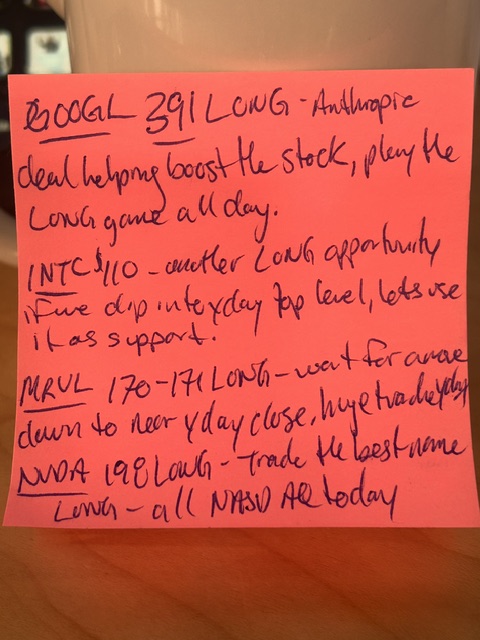 GOOGL 391 LONG - Anthropic
deal helping boost the stock, play the
LONG game all day.
INTC $110 - another LONG opportunity
if we dip into yday top level, lets use
it as support.
MRVL 170-171 LONG - wait for a move
down to near yday close, huge trade yday
NVDA 198 LONG - Trade the best name
LONG - all NASDAQ today